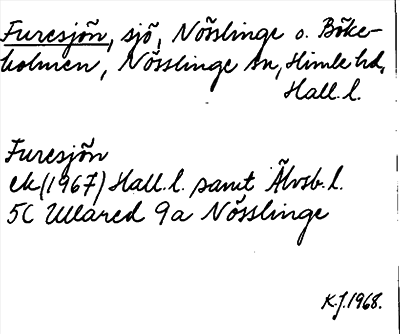 Furesjön, sjö, Nösslinge o. Böke-
holmen, Nösslinge sn, Himle hd,
Hall. l.
Furesjön
ek (1967) Hall. l. samt Älvsb. l.
5C Ullared 9a Nösslinge
K.J. 1968.